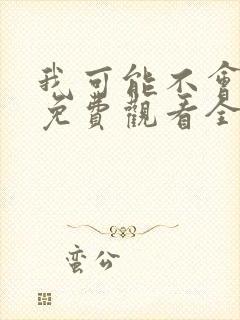 我可能不會
免費觀看全
蛮公